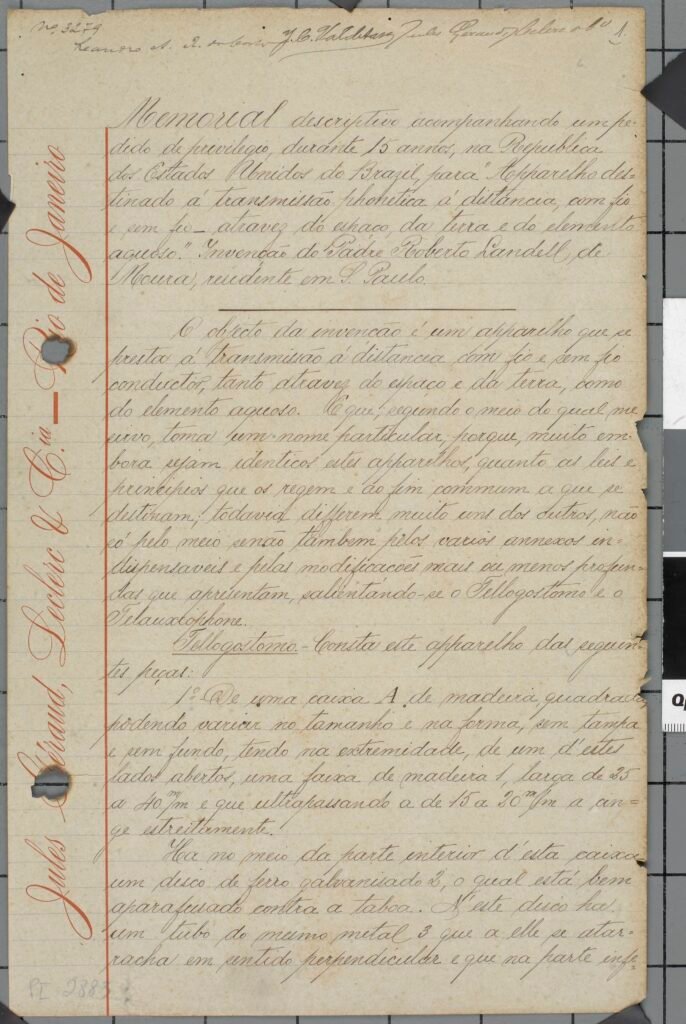 No. 3279
J. C. Valdetaro Jules Geraud, Leclerc & Cia 1.
Memorial descriptivo acompanhando um pe-
dido de privilegio, durante 15 annos, na Republica
dos Estados Unidos do Brazil, para "Apparelho des-
tinado á transmissão phonetica á distancia, com fio
e sem fio — atravez do espaço, da terra e do elemento
aquoso." Invenção do Padre Roberto Landell, de
Moura, residente em S. Paulo.
O objecto da invenção é um apparelho que se
presta á transmissão á distancia com fio e sem fio
conductor, tanto atravez do espaço e da terra, como
do elemento aquoso. E que, segundo o meio do qual me
sirvo, toma um nome particular, porque, muito em-
bora sejam identicos estes apparelhos, quanto as leis e
principios que os regem e ao fim commum a que se
destinam; todavia differem muito uns dos outros, não
só pelo meio senão tambem pelos varios annexos in-
dispensaveis e pelas modificações mais ou menos profun-
das que apresentam, salientando-se o Tellogostomo e o
Telauxiophone.
Tellogostomo - Consta este apparelho das seguin-
tes peças:
1º De uma caixa A de madeira quadrada
podendo variar no tamanho e na forma, sem tampa
e sem fundo, tendo na extremidade, de um d'estes
lados abertos, uma faixa de madeira 1, larga de 25
a 40 m/m e que ultrapassando a de 15 a 20 m/m a an-
ge estreitamente.
Ha no meio da parte interior d'esta caixa
um disco de ferro galvanisado 2, o qual está bem
aparafusado contra a taboa. N'este disco ha
um tubo do mesmo metal 3 que a elle se atar-
racha em sentido perpendicular e que na parte infe-
Jules Géraud, Leclerc & C.ia — Rio de Janeiro
PI-2883